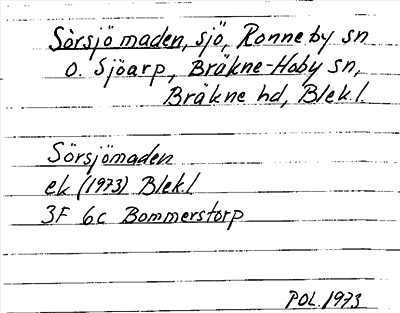 Sörsjömaden, sjö, Ronneby sn
O. Sjöarp, Bräkne-Hoby sn,
Bräkne hd, Blekl.
Sörsjömaden
ek (1973) Blekl
3F 6c Bommerstorp
POL 1973